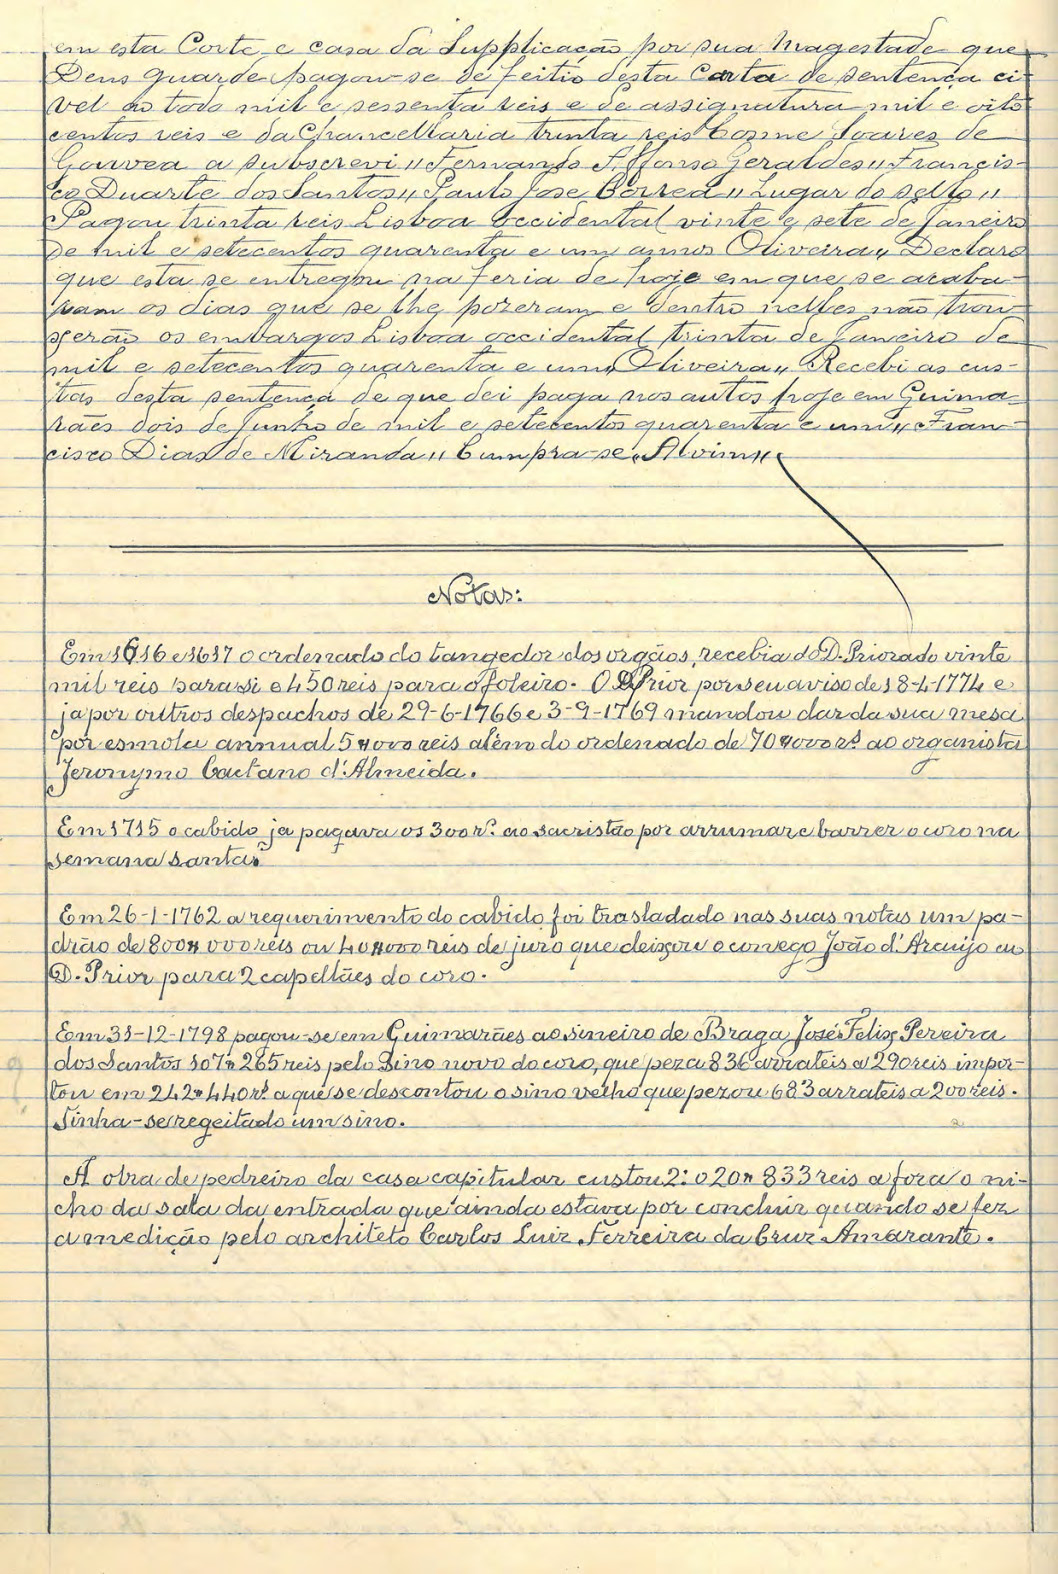 em esta Corte e casa da Supplicação por sua Magestade que
Deus guarde pagou-se de feitio desta Carta de sentença ci-
vel ao todo mil e sessenta reis e de assignatura mil e oito
centos reis e da Chancellaria trinta reis Cosme Soares de
Gouvea a subscrevi" Fernando Affonso Geraldes" Francis-
co Duarte dos Santos" Paulo Jose Correa" Lugar do sello"
Pagou trinta reis Lisboa occidental vinte e sete de Janeiro
de mil e setecentos quarenta e um annos Oliveira" Declaro
que esta se entregou na feria de hoje em que se acaba-
vam os dias que se lhe pozeram e dentro nelles não trou
xerão os embargos Lisboa occidental trinta de Janeiro de
mil e setecentos quarenta e um" Oliveira" Recebi as cus-
tas desta sentença de que dei paga nos autos hoje em Guima-
rães dois de Junho de mil e setecentos quarenta e um" Fran-
cisco Dias de Miranda" Cumpra-se" Alvim"
Notas:
Em 1616 e 1617 o ordenado do tangedor dos orgãos, recebia do D. Priorado vinte
mil reis para si e 450 reis para o foleiro. O D. Prior por seu aviso de 18-4-1774 e
ja por outros despachos de 29-6-1766 e 3-9-1769 mandou dar da sua mesa
por esmola annual 5$000 reis além do ordenado de 70$000 rs. ao organista
Jeronymo Caetano d'Almeida.
Em 1715 o cabido ja pagava os 300 rs. ao sacristão por arrumar e barrer o coro na
semana santa.
Em 26-1-1762 a requerimento do cabido foi trasladado nas suas notas um pa-
drão de 800$000 reis ou 40$000 reis de juro que deixou o conego João d'Araujo ao
D. Prior para 2 capellães do coro.
Em 31-12-1798 pagou-se em Guimarães ao sineiro de Braga José Felix Pereira
dos Santos 107$265 reis pelo Sino novo do coro, que peza 836 arrateis a 290 reis impor-
tou em 242$440 rs. a que se descontou o sino velho que pezou 683 arrateis a 200 reis.
Tinha-se regeitado um sino.
A obra de pedreiro da casa capitular custou 2:020$833 reis a fora o ni-
cho da sala da entrada que ainda estava por concluir quando se fez
a medição pelo architeto Carlos Luiz Ferreira da Cruz Amarante.